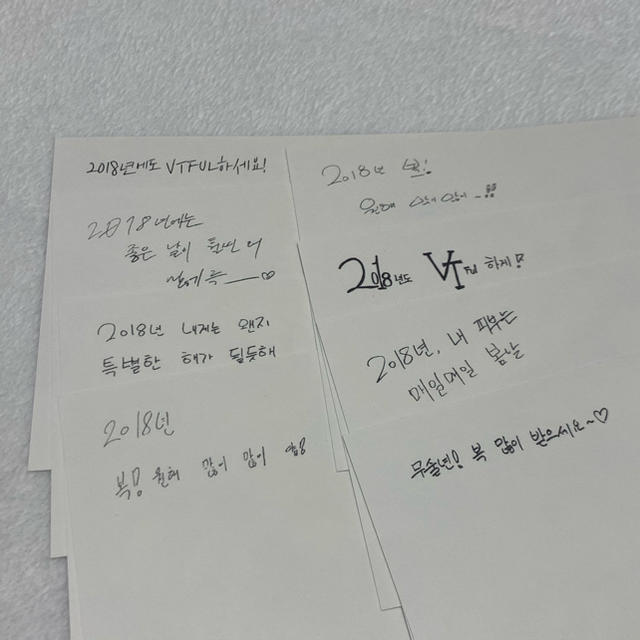 2018년에도 VTFUL하세요!
2018년에는
좋은 날이
2018년 내게는 왠지
특별한 해가 될듯해
2018년
복! 올해 많이 많이
2018년
올해 많이 많이~!!
2018년도 VT FUL 하게!
2018년, 내 피부는
매일매일 봄날
무술년! 복 많이 받으시오~♡